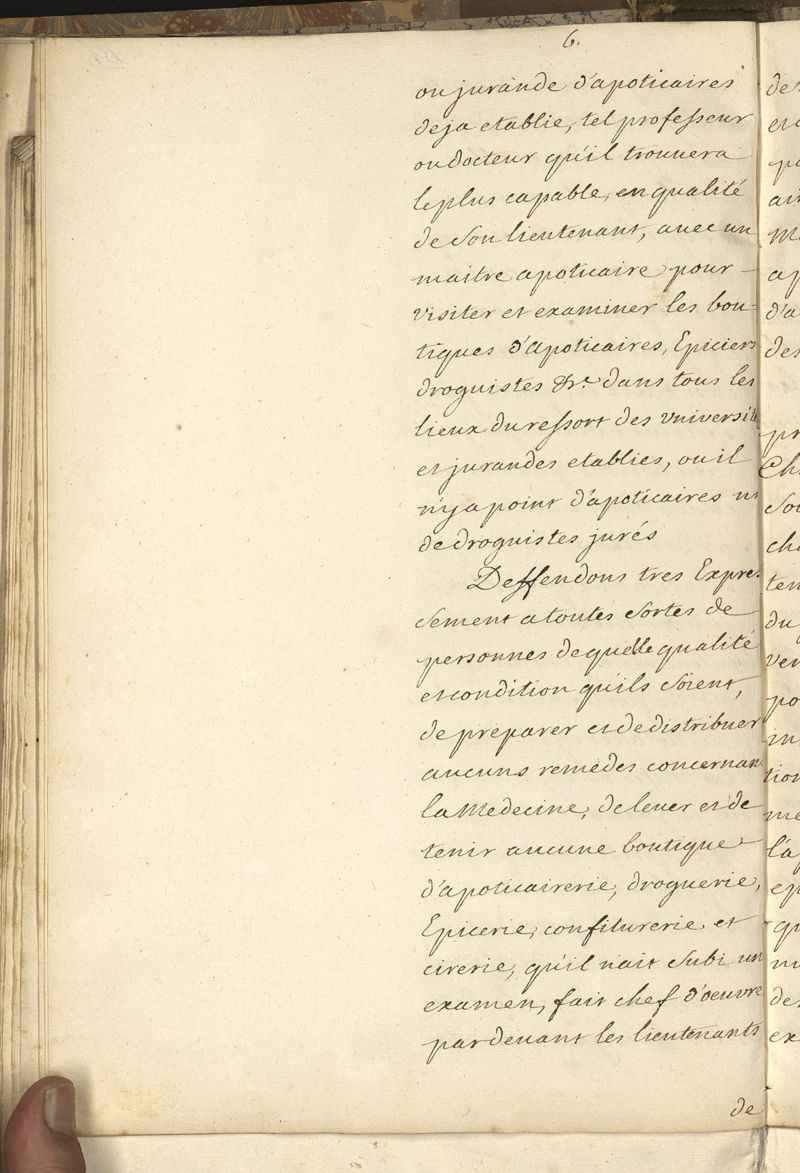 6.
ou jurande d'apoticaires
deja etablie, tel professeur
ou docteur qu'il trouvera
le plus capable, en qualité
de son lieutenant, avec un
maitre apoticaire pour -
visiter et examiner les bou=
tiques d'apoticaires, Epiciers
droguistes &r.ª dans tous les
lieux du ressort des vniversité
et jurandes etablies, ou il
n'y a point d'apoticaires ni
de droguistes jurés
Deffendons tres Expre.
sement a toutes sortes de
personnes de quelle qualité
et condition quils soient,
de preparer et de distribuer
aucuns remédes concernan
la Medecine, de lever et de
tenir aucune boutique
d'apoticairerie, droguerie,
Epicerie, confiturerie et
cirerie, qu'il n'ait subi un
examen, fait chef d'oeuvre
par devant les lieutenants
de